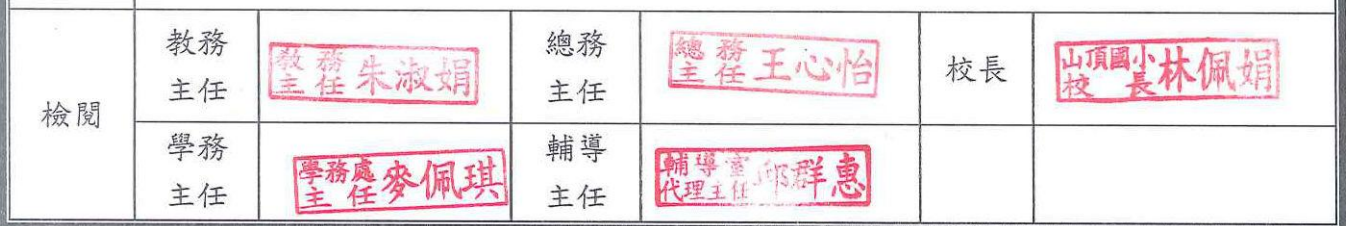 檢閱
教務
主任
教務
主任 朱淑娟
總務
主任
總務
主任 王心怡
校長
山頂國小
校長 林佩娟
學務
主任
學務處
主任 麥佩琪
輔導
主任
輔導室
代理主任 邱群惠